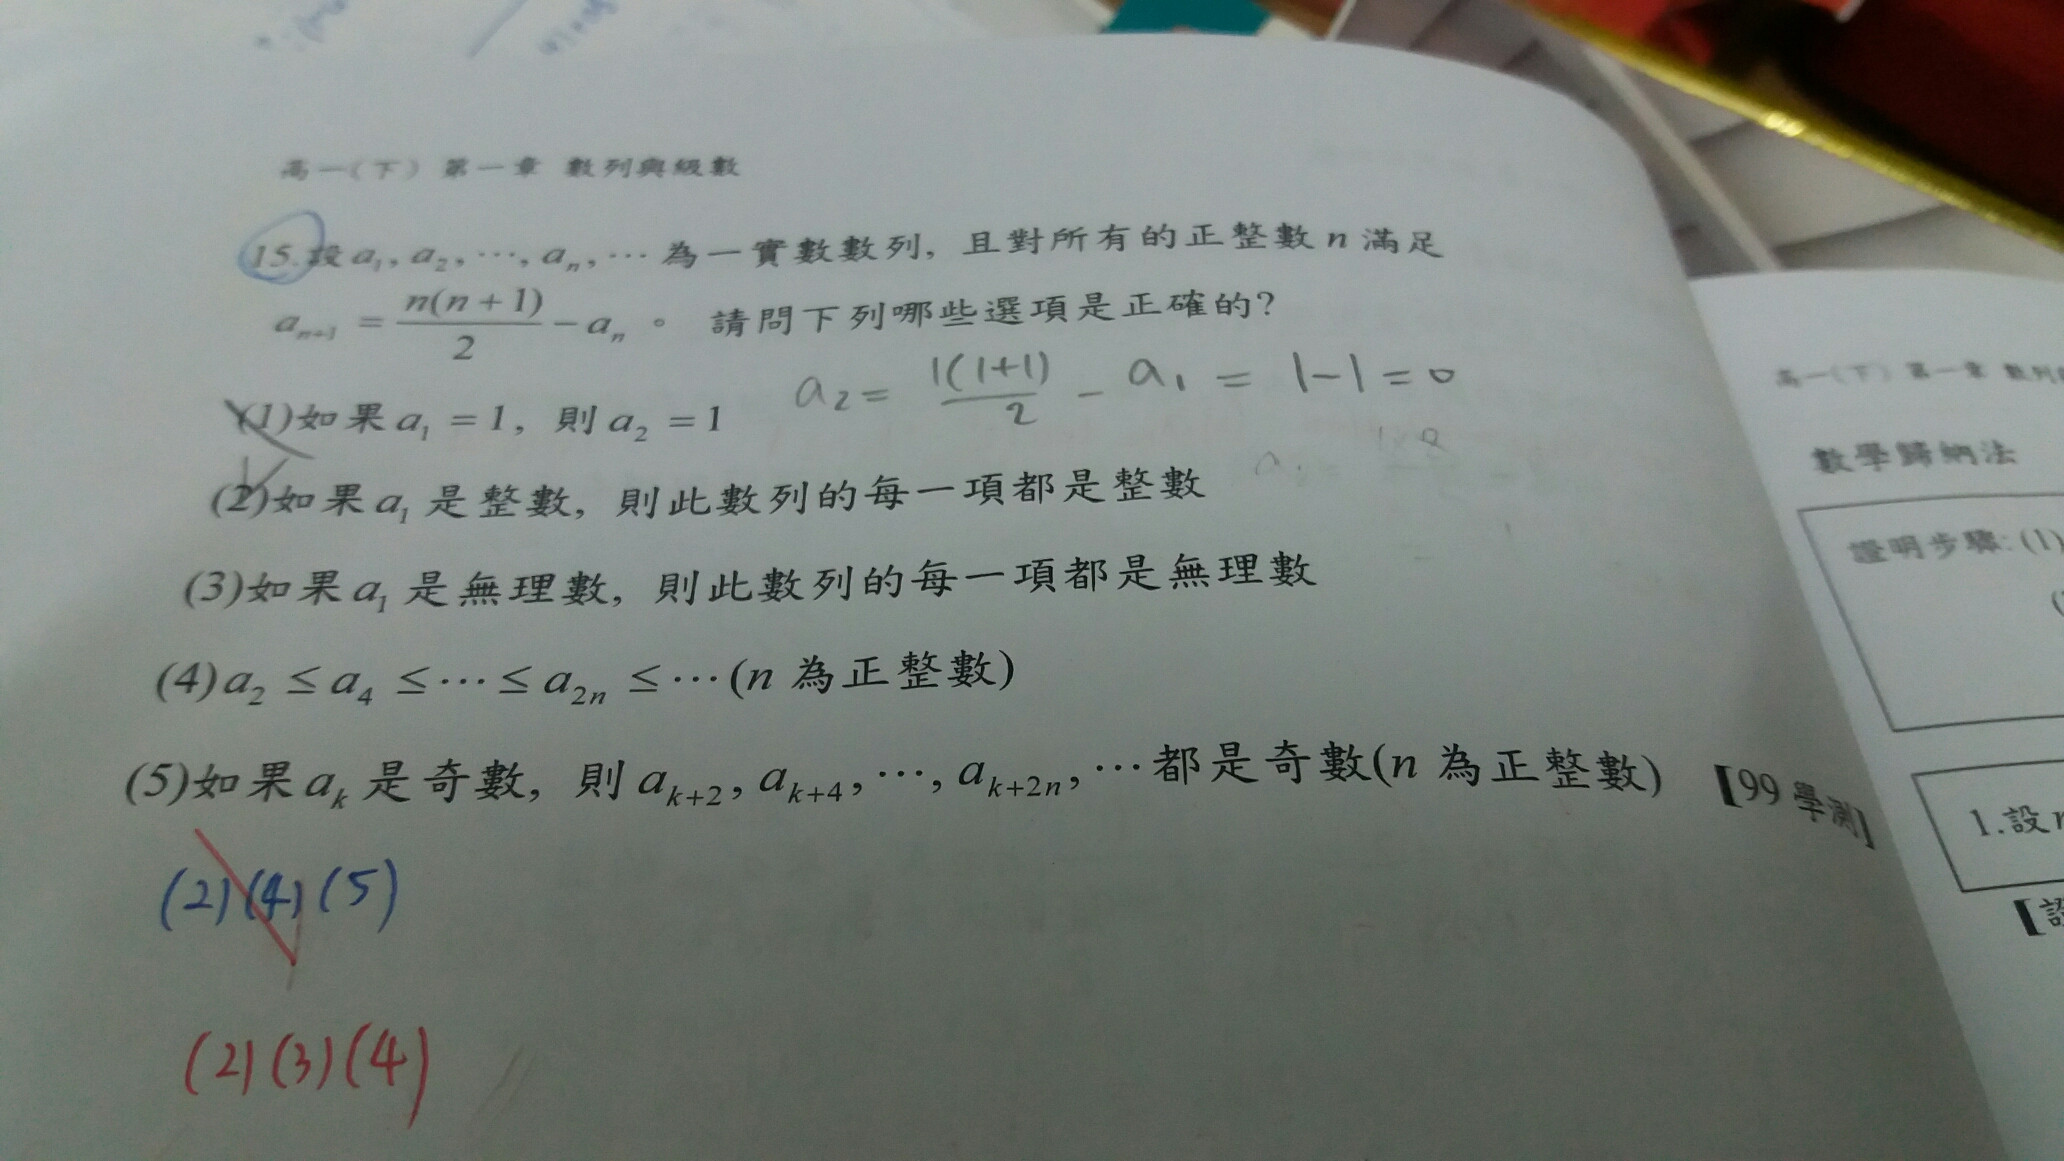 高一(下) 第一章 數列與級數
15.設 a₁, a₂, ⋯, aₙ, ⋯ 為一實數數列, 且對所有的正整數 n 滿足
aₙ₊₁ = n(n+1)/2 − aₙ 。 請問下列哪些選項是正確的?
(1)如果 a₁ = 1, 則 a₂ = 1
a₂ = 1(1+1)/2 − a₁ = 1−1 = 0
(2)如果 a₁ 是整數, 則此數列的每一項都是整數
(3)如果 a₁ 是無理數, 則此數列的每一項都是無理數
(4) a₂ ≤ a₄ ≤ ⋯ ≤ a₂ₙ ≤ ⋯ (n 為正整數)
(5)如果 aₖ 是奇數, 則 aₖ₊₂, aₖ₊₄, ⋯, aₖ₊₂ₙ, ⋯ 都是奇數(n 為正整數) 【99 學測】
(2)(4)(5)
(2)(3)(4)
高一(下) 第一章 數列
數學歸納法
證明步驟: (1)
1.設